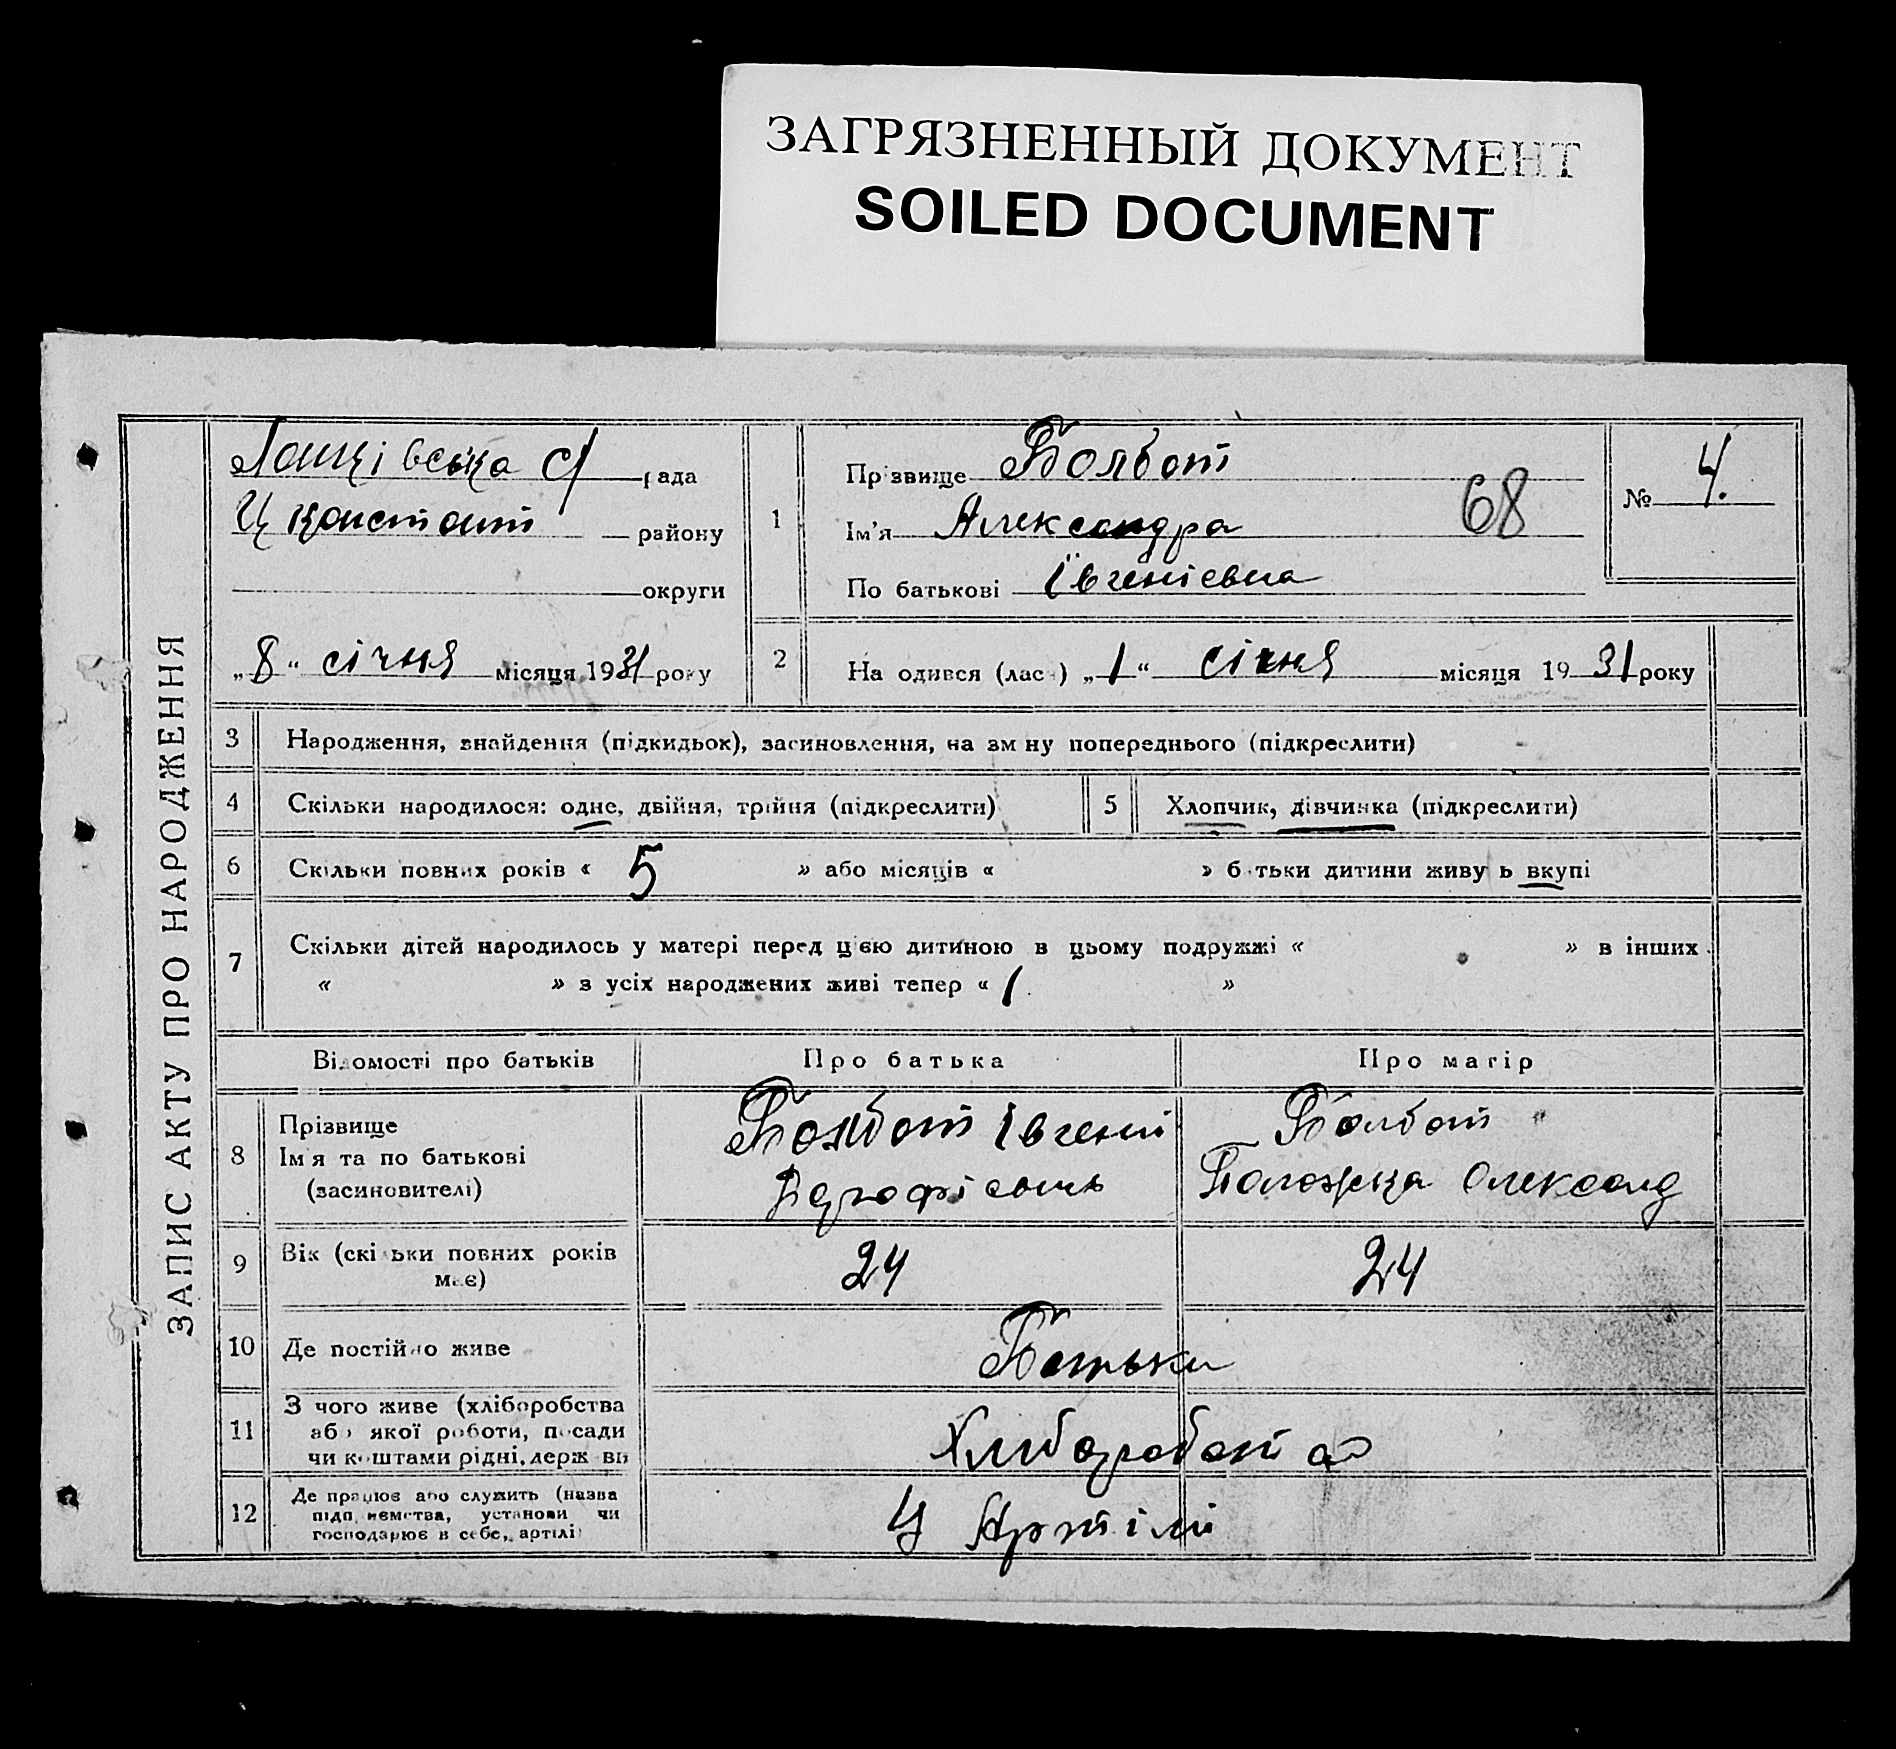 ЗАГРЯЗНЕННЫЙ ДОКУМЕНТ
SOILED DOCUMENT
ЗАПИС АКТУ ПРО НАРОДЖЕННЯ
рада
району
округи
„8“ січня місяця 1931 року
1
Прізвище Болбот
Ім'я Александра
По батькові Івгеніевна
68
№ 4.
2
На одився (лас ) „1“ січня місяця 1931 року
3 Народження, знайдення (підкидьок), засиновлення, на зм ну попереднього (підкреслити)
4 Скільки народилося: одне, двійня, трійня (підкреслити)
5 Хлопчик, дівчинка (підкреслити)
6 Скільки повних років « 5 » або місяців « » б тьки дитини живу ь вкупі
7 Скільки дітей народилось у матері перед цією дитиною в цьому подружжі « » в інших
« » з усіх народжених живі тепер « 1 »
Відомості про батьків Про батька Про матір
8 Прізвище
Ім'я та по батькові
(засиновителі)
Болбот Івгений
Болбот
Олександ
9 Вік (скі ьки повних років
має)
24 24
10 Де постійно живе
Батьки
11 З чого живе (хліборобства
або якої роботи, посади
чи коштами рідні, держ ви
12 Де працює або служить (назва
підп иємства, установи чи
господарює в себе, артілі)
У Артілі